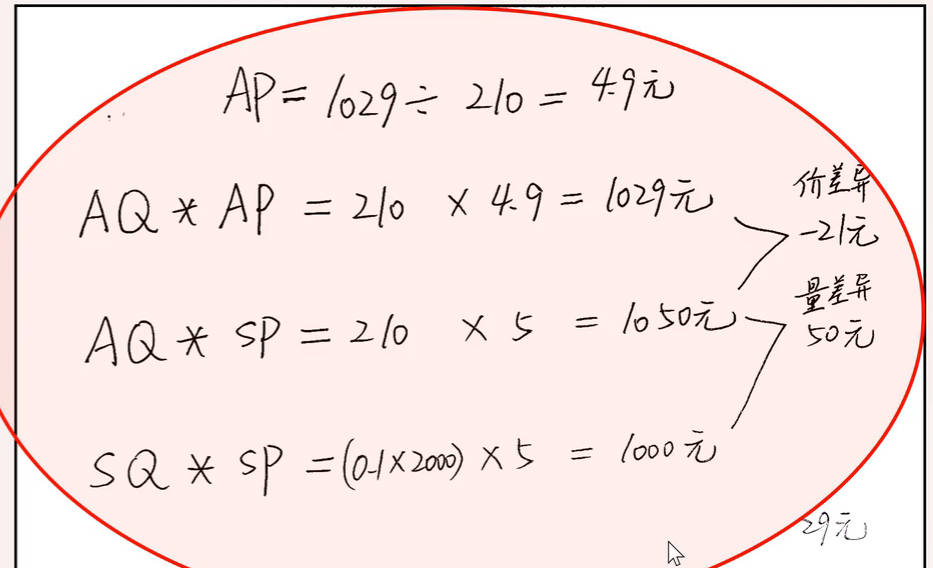 AP = 1029 ÷ 210 = 4.9元
价差异
AQ * AP = 210 × 4.9 = 1029元
-21元
量差异
AQ * SP = 210 × 5 = 1050元
50元
SQ * SP = (0.1×2000) × 5 = 1000元
29元